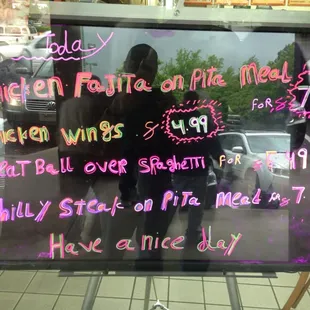 Today
hicken Fajita on Pita Meal for $ 7
hicken Wings $ 4.99
eat Ball over Spaghetti for $ 5.49
hilly Steak on Pita Meal $ 7.
Have a nice day